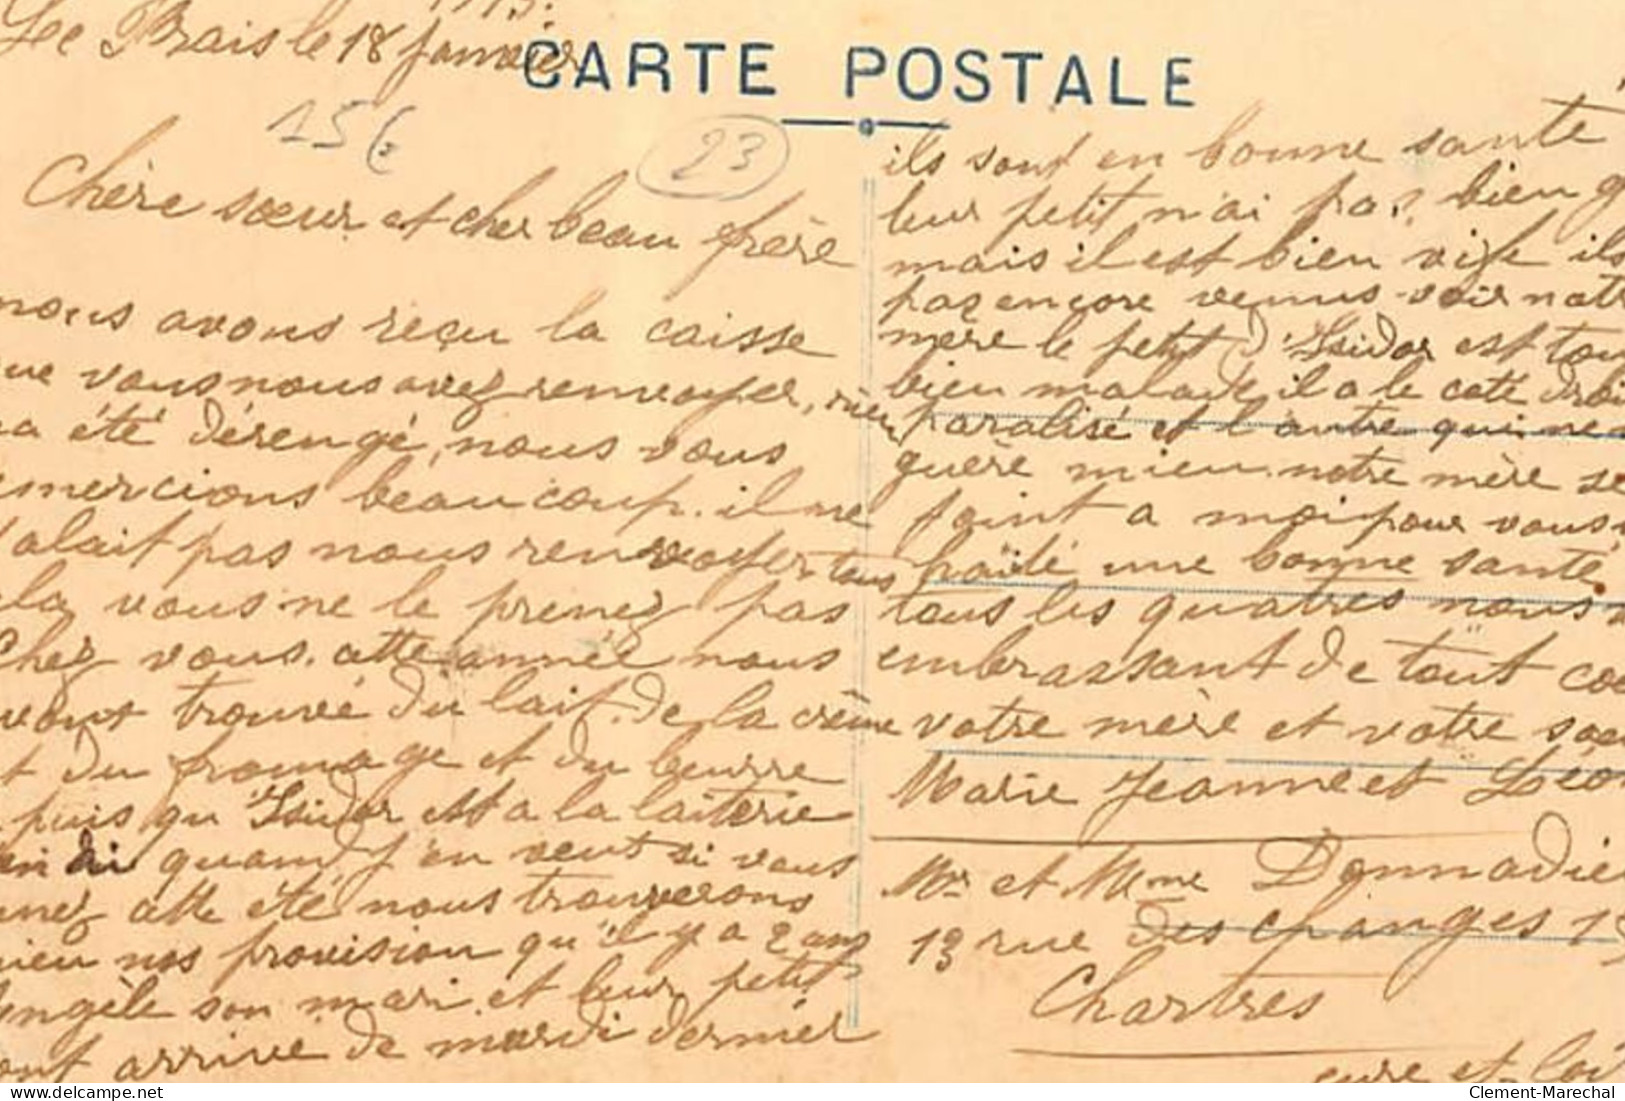 1915.
Le Brais le 18 janvier
CARTE POSTALE
15€
23
Chère sœur et cher beau frère
nous avons reçu la caisse
que vous nous avez renvoyer, rien
a été dérengé, nous vous
emercions beaucoup. il ne
alait pas nous renvoyer tous
la vous ne le prenez pas
chez vous. cette année nous
avons trouvé du lait. de la crème
t du fromage et du beurre
puis qu'Isidor est a la laiterie
quand j'en veut si vous
enez cette été nous trouverons
mieu nos provision qu'il y a 2 ans
Angèle son mari et leur petit
ont arrivé de mardi dernier
ils sont en bonne santé
leur petit n'ai pas bien g
mais il est bien vife ils
pas encore venus voir notr
mère le petit d'Isidor est tou
bien malade il a le coté droi
paralisé et l'autre qui ne
guère mieu. notre mère se
joint a moi pour vous
haité une bonne santé.
tous les quatres nous
embrassant de tout coe
votre mère et votre sœu
Marie Jeanne et Léon
Mr et Mme Donnadieu
13 rue des changes 13
Chartres
eure et loi
Clement-Marechal